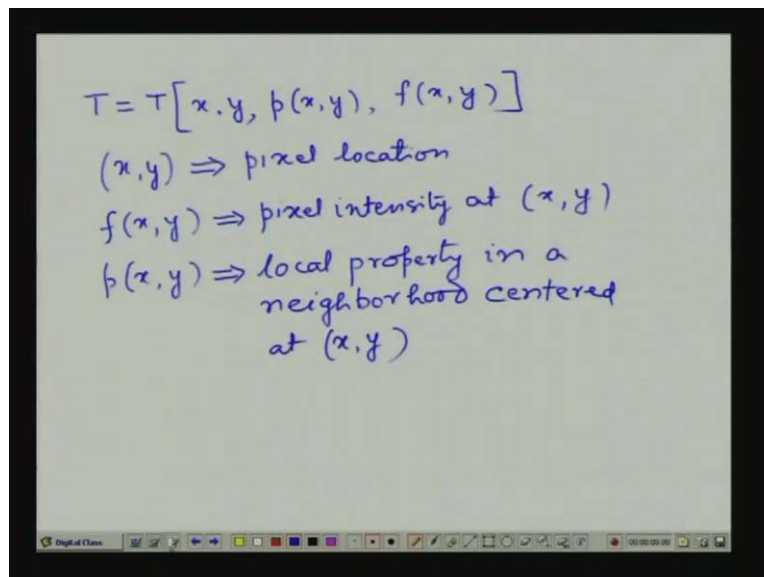 T = T[x.y, p(x,y), f(x,y)]
(x,y) ⇒ pixel location
f(x,y) ⇒ pixel intensity at (x,y)
p(x,y) ⇒ local property in a
neighborhood centered
at (x,y)
Digital Class
00:00:00.00